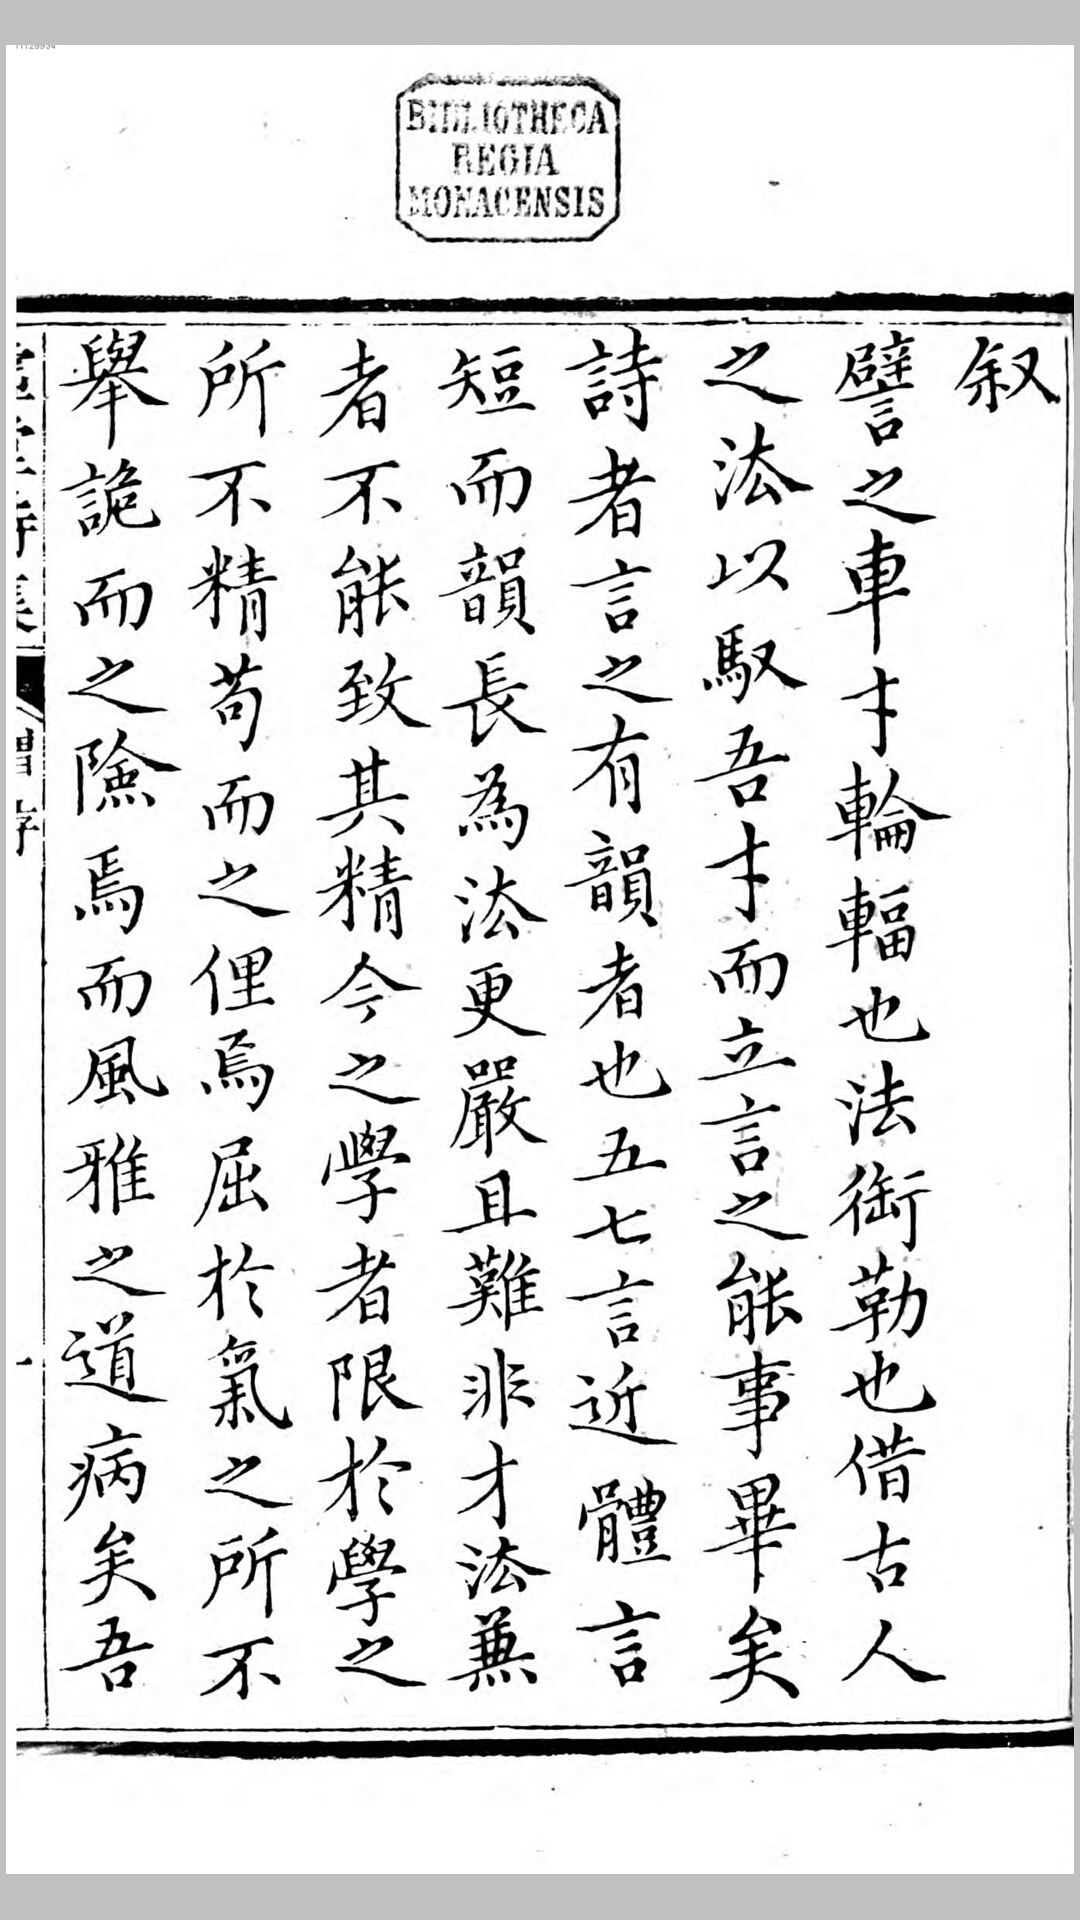 11129934
BIBLIOTHECA
REGIA
MONACENSIS
叙
譬之車才輪輻也法銜勒也借古人
之法以馭吾才而立言之能事畢矣
詩者言之有韻者也五七言近體言
短而韻長為法更嚴且難非才法兼
者不能致其精今之學者限於學之
所不精茍而之俚焉屈於氣之所不
舉詭而之險焉而風雅之道病矣吾